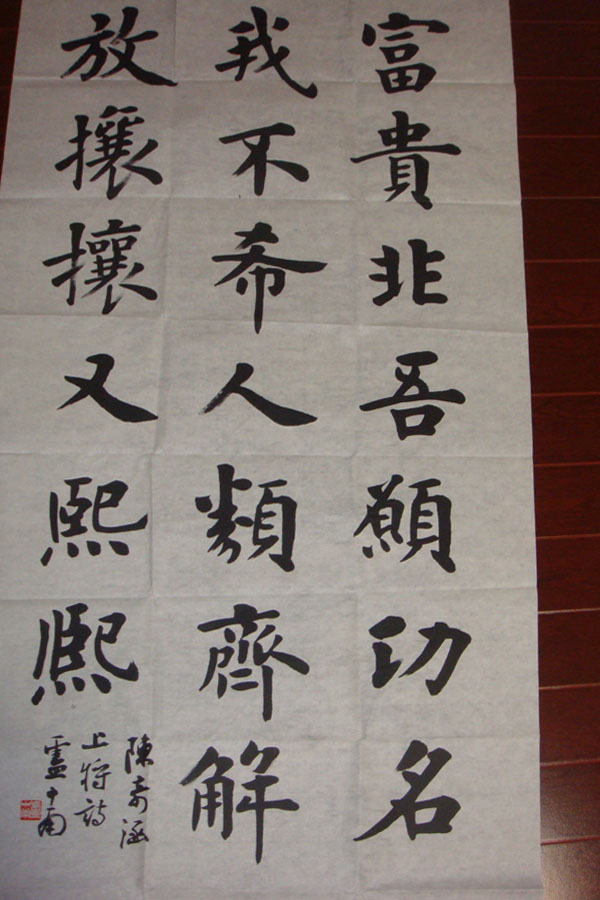 富貴非吾願功名
我不希人類齊解
放攘攘又熙熙
陳奇涵
上将詩